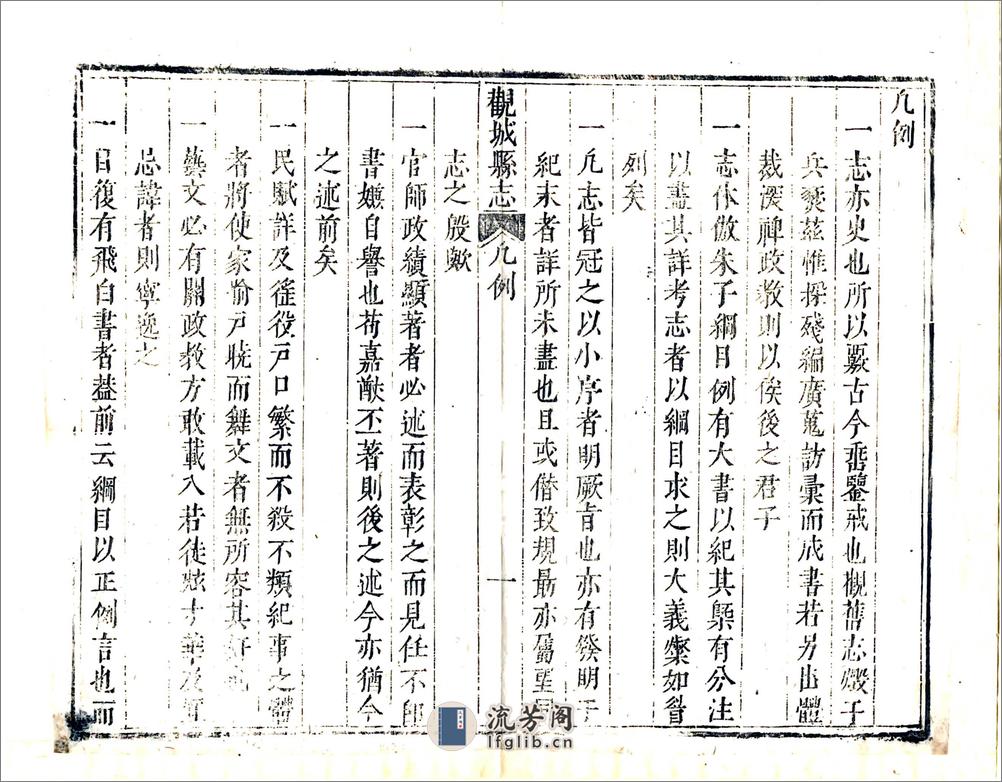 凡例
一志亦史也所以覈古今垂鑒戒也觀舊志燬于
兵燹茲惟採殘編廣蒐訪彙而成書若另出體
裁深裨政教則以俟後之君子
一志体倣朱子綱目例有大書以紀其槩有分注
以盡其詳考志者以綱目求之則大義燦如
列矣
一凡志皆冠之以小序者明厥旨也亦有發明于
紀末者詳所未盡也且或僭致規勗亦屬望
觀城縣志
凡例
一
志之殷歟
一官師政績顯著者必述而表彰之而見任不
書嫌自譽也苟嘉猷丕著則後之述今亦猶今
之述前矣
一民賦詳及徭役戶口繁而不殺不類紀事之體
者將使家喻戸曉而舞文者無所容其奸也
一藝文必有關政教方敢載入若徒炫才華及有
忌諱者則寧逸之
一目復有飛白書者葢前云綱目以正例言也而
流芳阁
lfglib.cn